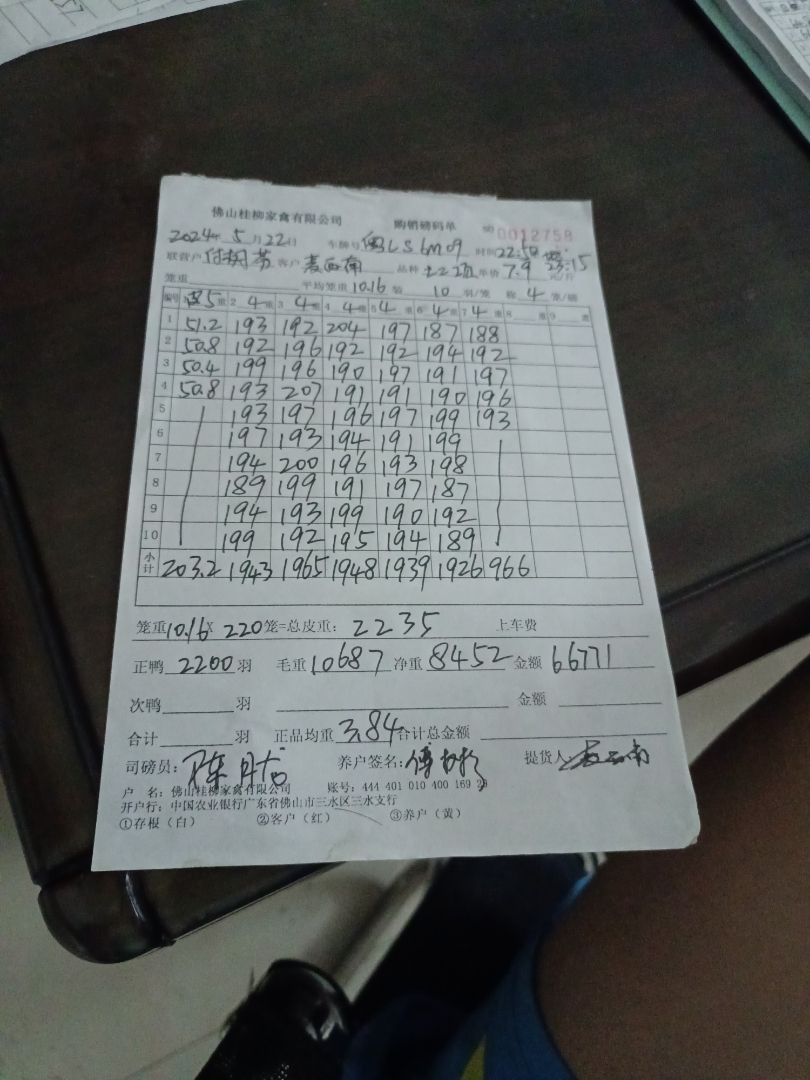 佛山桂柳家禽有限公司 购销磅码单 NO 0012758
2024年 5月22日 车牌号 LS6M09 时间 22:50 23:15
联营户 客户 麦西南 品种 土2 单价 7.9 元/斤
笼重 平均笼重 10.16 装 10 羽/笼 称 4 笼/磅
编号 5重 2 4重 3 4重 4 4重 5 4重 6 4重 7 4重 8 重 9 重
1 51.2 193 192 204 197 187 188
2 50.8 192 196 192 192 194 192
3 50.4 199 196 190 197 191 197
4 50.8 193 207 191 191 190 196
5 193 197 196 197 199 193
6 197 193 194 191 199
7 194 200 196 193 198
8 189 199 191 197 187
9 194 193 199 190 192
10 199 192 195 194 189
小计 203.2 1943 1965 1948 1939 1926 966
笼重 10.16 x 220 笼=总皮重: 2235 上车费
正鸭 2200 羽 毛重 10687 净重 8452 金额 66771
次鸭 羽 金额
合计 羽 正品均重 3.84 合计总金额
司磅员: 养户签名: 提货人
户 名: 佛山桂柳家禽有限公司 账号: 444 401 010 400 169 28
开户行: 中国农业银行广东省佛山市三水区三水支行
①存根(白) ②客户(红) ③养户(黄)